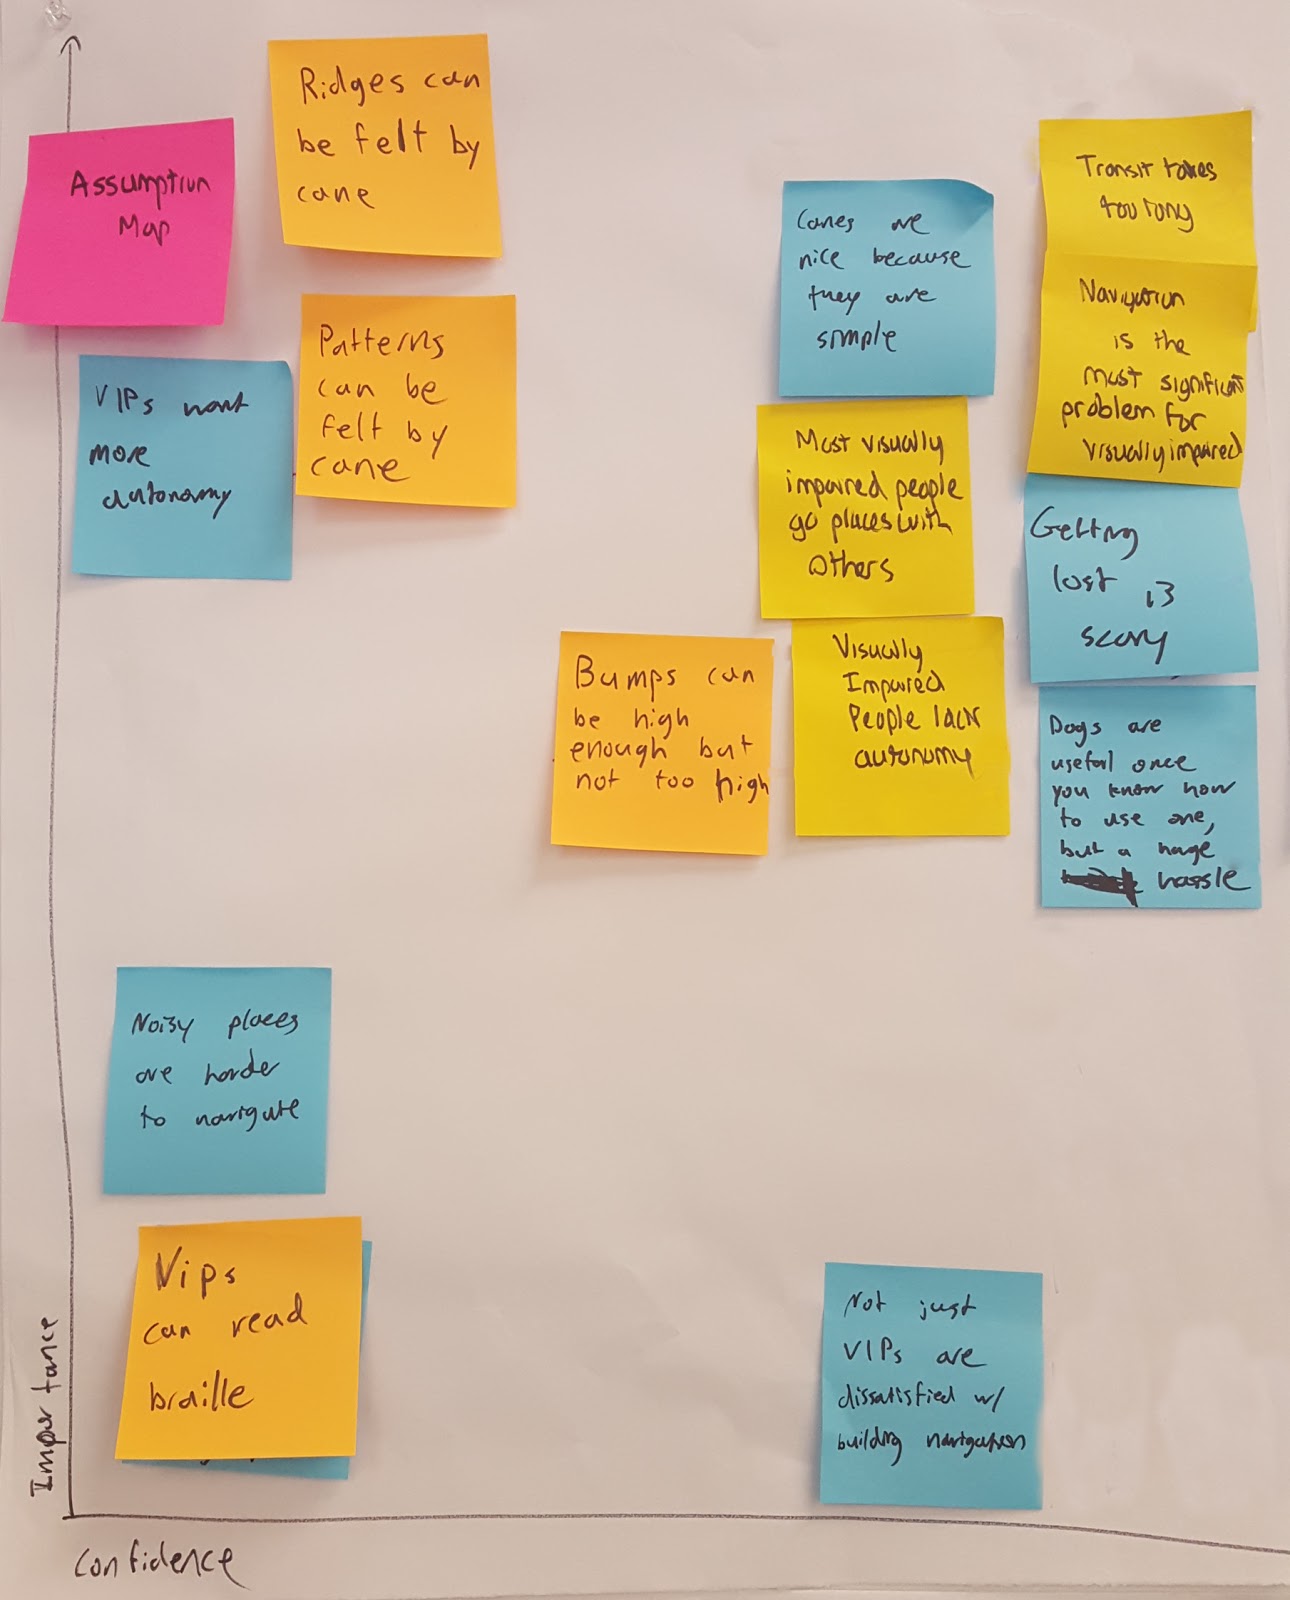 Assumption
Map
Ridges can
be felt by
cane
Patterns
can be
felt by
cane
VIPs want
more
autonomy
Canes are
nice because
they are
simple
Transit takes
too long
Navigation
is the
most significant
problem for
visually impaired
Most visually
impaired people
go places with
others
Getting
lost is
scary
Bumps can
be high
enough but
not too high
Visually
Impaired
People lack
autonomy
Dogs are
useful once
you know how
to use one,
but a huge
hassle
Noisy places
are harder
to navigate
Vips
can read
braille
Not just
VIPs are
dissatisfied w/
building navigation
Importance
Confidence